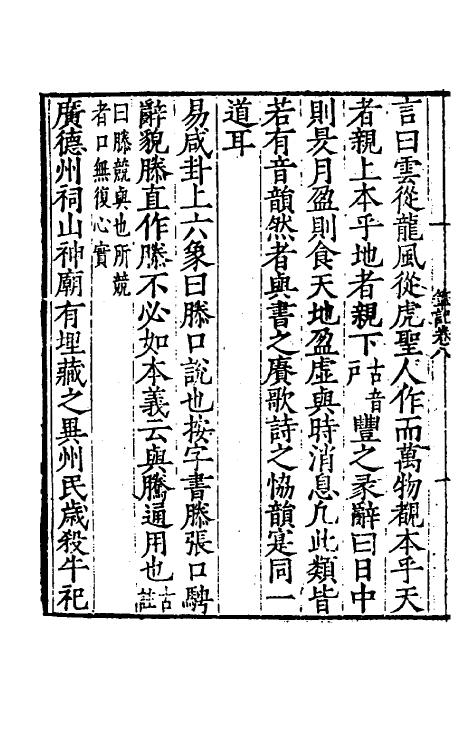 言曰雲從龍風從虎聖人作而萬物覩本乎天
者親上本乎地者親下古音戶豐之彖辭曰日中
則昃月盈則食天地盈虛與時消息凢此類皆
若有音韻然者與書之賡歌詩之恊韻寔同一
道耳
易咸卦上六象曰滕口說也按字書滕張口騁
辭貌滕直作滕不必如本義云與騰通用也古註
曰滕競與也所競
者口無復心實
廣德州祠山神廟有埋藏之異州民歲殺牛祀
卷八